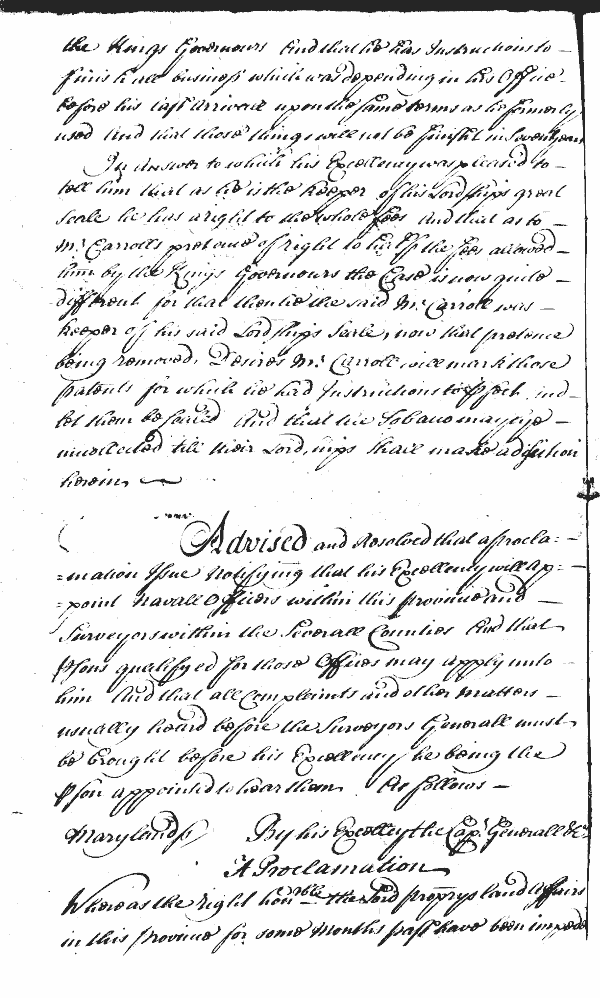 the Kings Governours And that he has Instructions to
finish all business which was depending in his Office
before his last Arrivall upon the same terms as he formerly
used And that those things will not be finisht in Seven years
In Answer to which his Excellency was pleased to
tell him that as he is the Keeper of his Lordships great
Seale he has a right to the whole fees And that as to
Mr. Carrolls pretence of right to half the fees allowed
him by the Kings Governours the Case is now quite
different for that then he the said Mr. Carroll was
keeper of his said Lordships Seale, now that pretence
being removed, Desires Mr. Carroll will mark those
patents for which he had Instructions to pass and
let them be sealed And that the Tobacco may lye
uncollected till their Lordships shall make a decision
herein
Advised and Resolved that a procla=
=mation Issue Notifying that his Excellency will ap=
=point Navall Officers within this province and
Surveyors within the Severall Counties And that
psons qualifyed for those Offices may apply unto
him And that all Complaints and other matters
usually heard before the Surveyors Generall must
be brought before his Excellency he being the
pson appointed to hear them As follows
Maryland ss By his Excellcy the Capt. Generall &c
A Proclamation
Whereas the right honrable the Lord proprys land Affairs
in this province for some Months past have been impeded